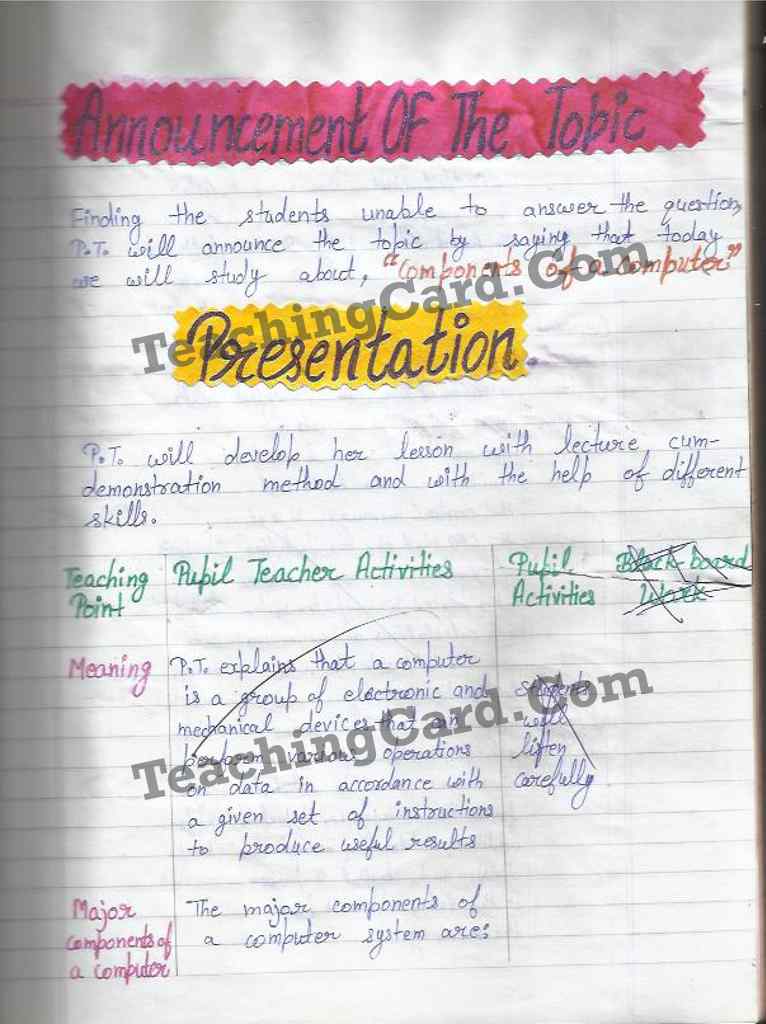 Announcement Of The Topic
Finding the students unable to answer the question,
P.T. will announce the topic by saying that today
we will study about, "Components of a computer"
TeachingCard.Com
Presentation.
P.T. will develop her lesson with lecture cum-
demonstration method and with the help of different
skills.
Teaching Point
Pupil Teacher Activities
Pupil Activities
Black board Work
Meaning
P.T. explains that a computer
is a group of electronic and
mechanical devices that can
perform various operations
on data in accordance with
a given set of instructions
to produce useful results
students
will
listen
carefully
TeachingCard.Com
Major
components of
a computer
The major components of
a computer system are: